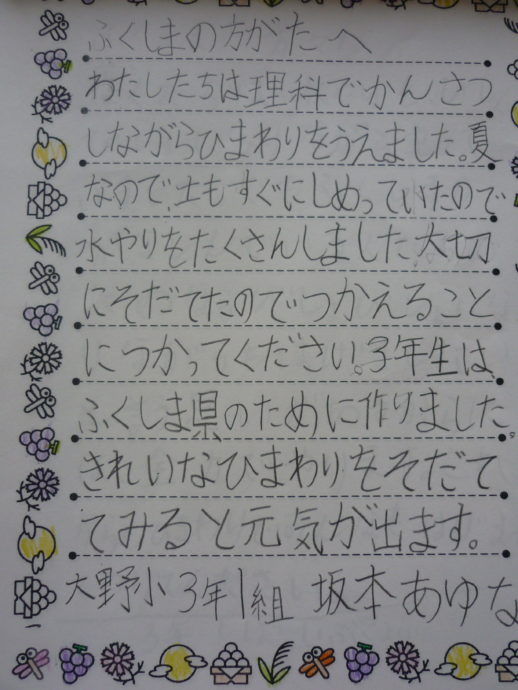 ふくしまの方がたへ
わたしたちは理科でかんさつ
しながらひまわりをうえました。夏
なので、土もすぐにしめっていたので
水やりをたくさんしました。大切
にそだてたのでつかえること
につかってください。3年生は
ふくしま県のために作りました。
きれいなひまわりをそだて
てみると元気が出ます。
大野小3年1組 坂本あゆな